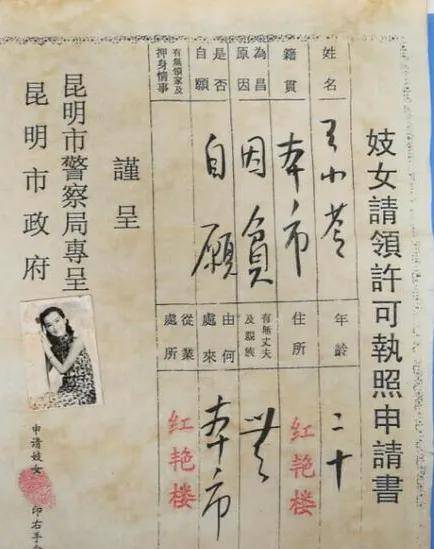 妓女請領許可執照申請書
姓名 王小 年齡 二十
籍貫 本市 住所 红艳楼
為昌原因 因貧 有無丈夫及親族 無
是否自願 自願 由何處來 本市
有無領家及押身情事 從業處所 红艳楼
謹呈
昆明市警察局專呈
昆明市政府
申请妓女 印右手